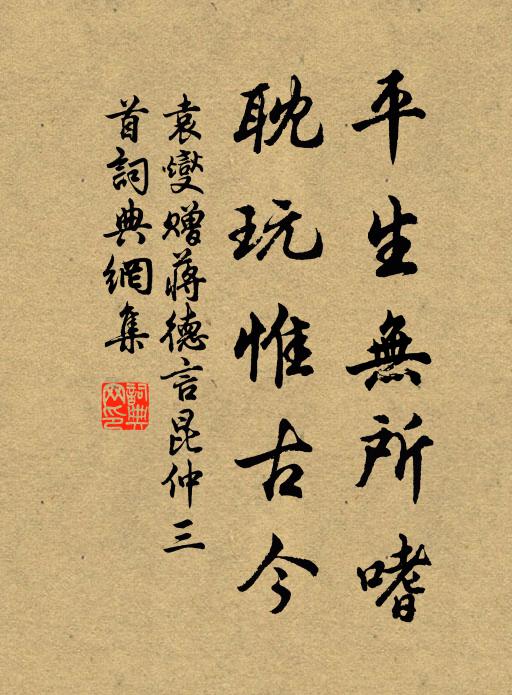 平生無所嗜
耽玩惟古今
袁燮贈蔣德言昆仲三
首詞典網集
詞典
网印